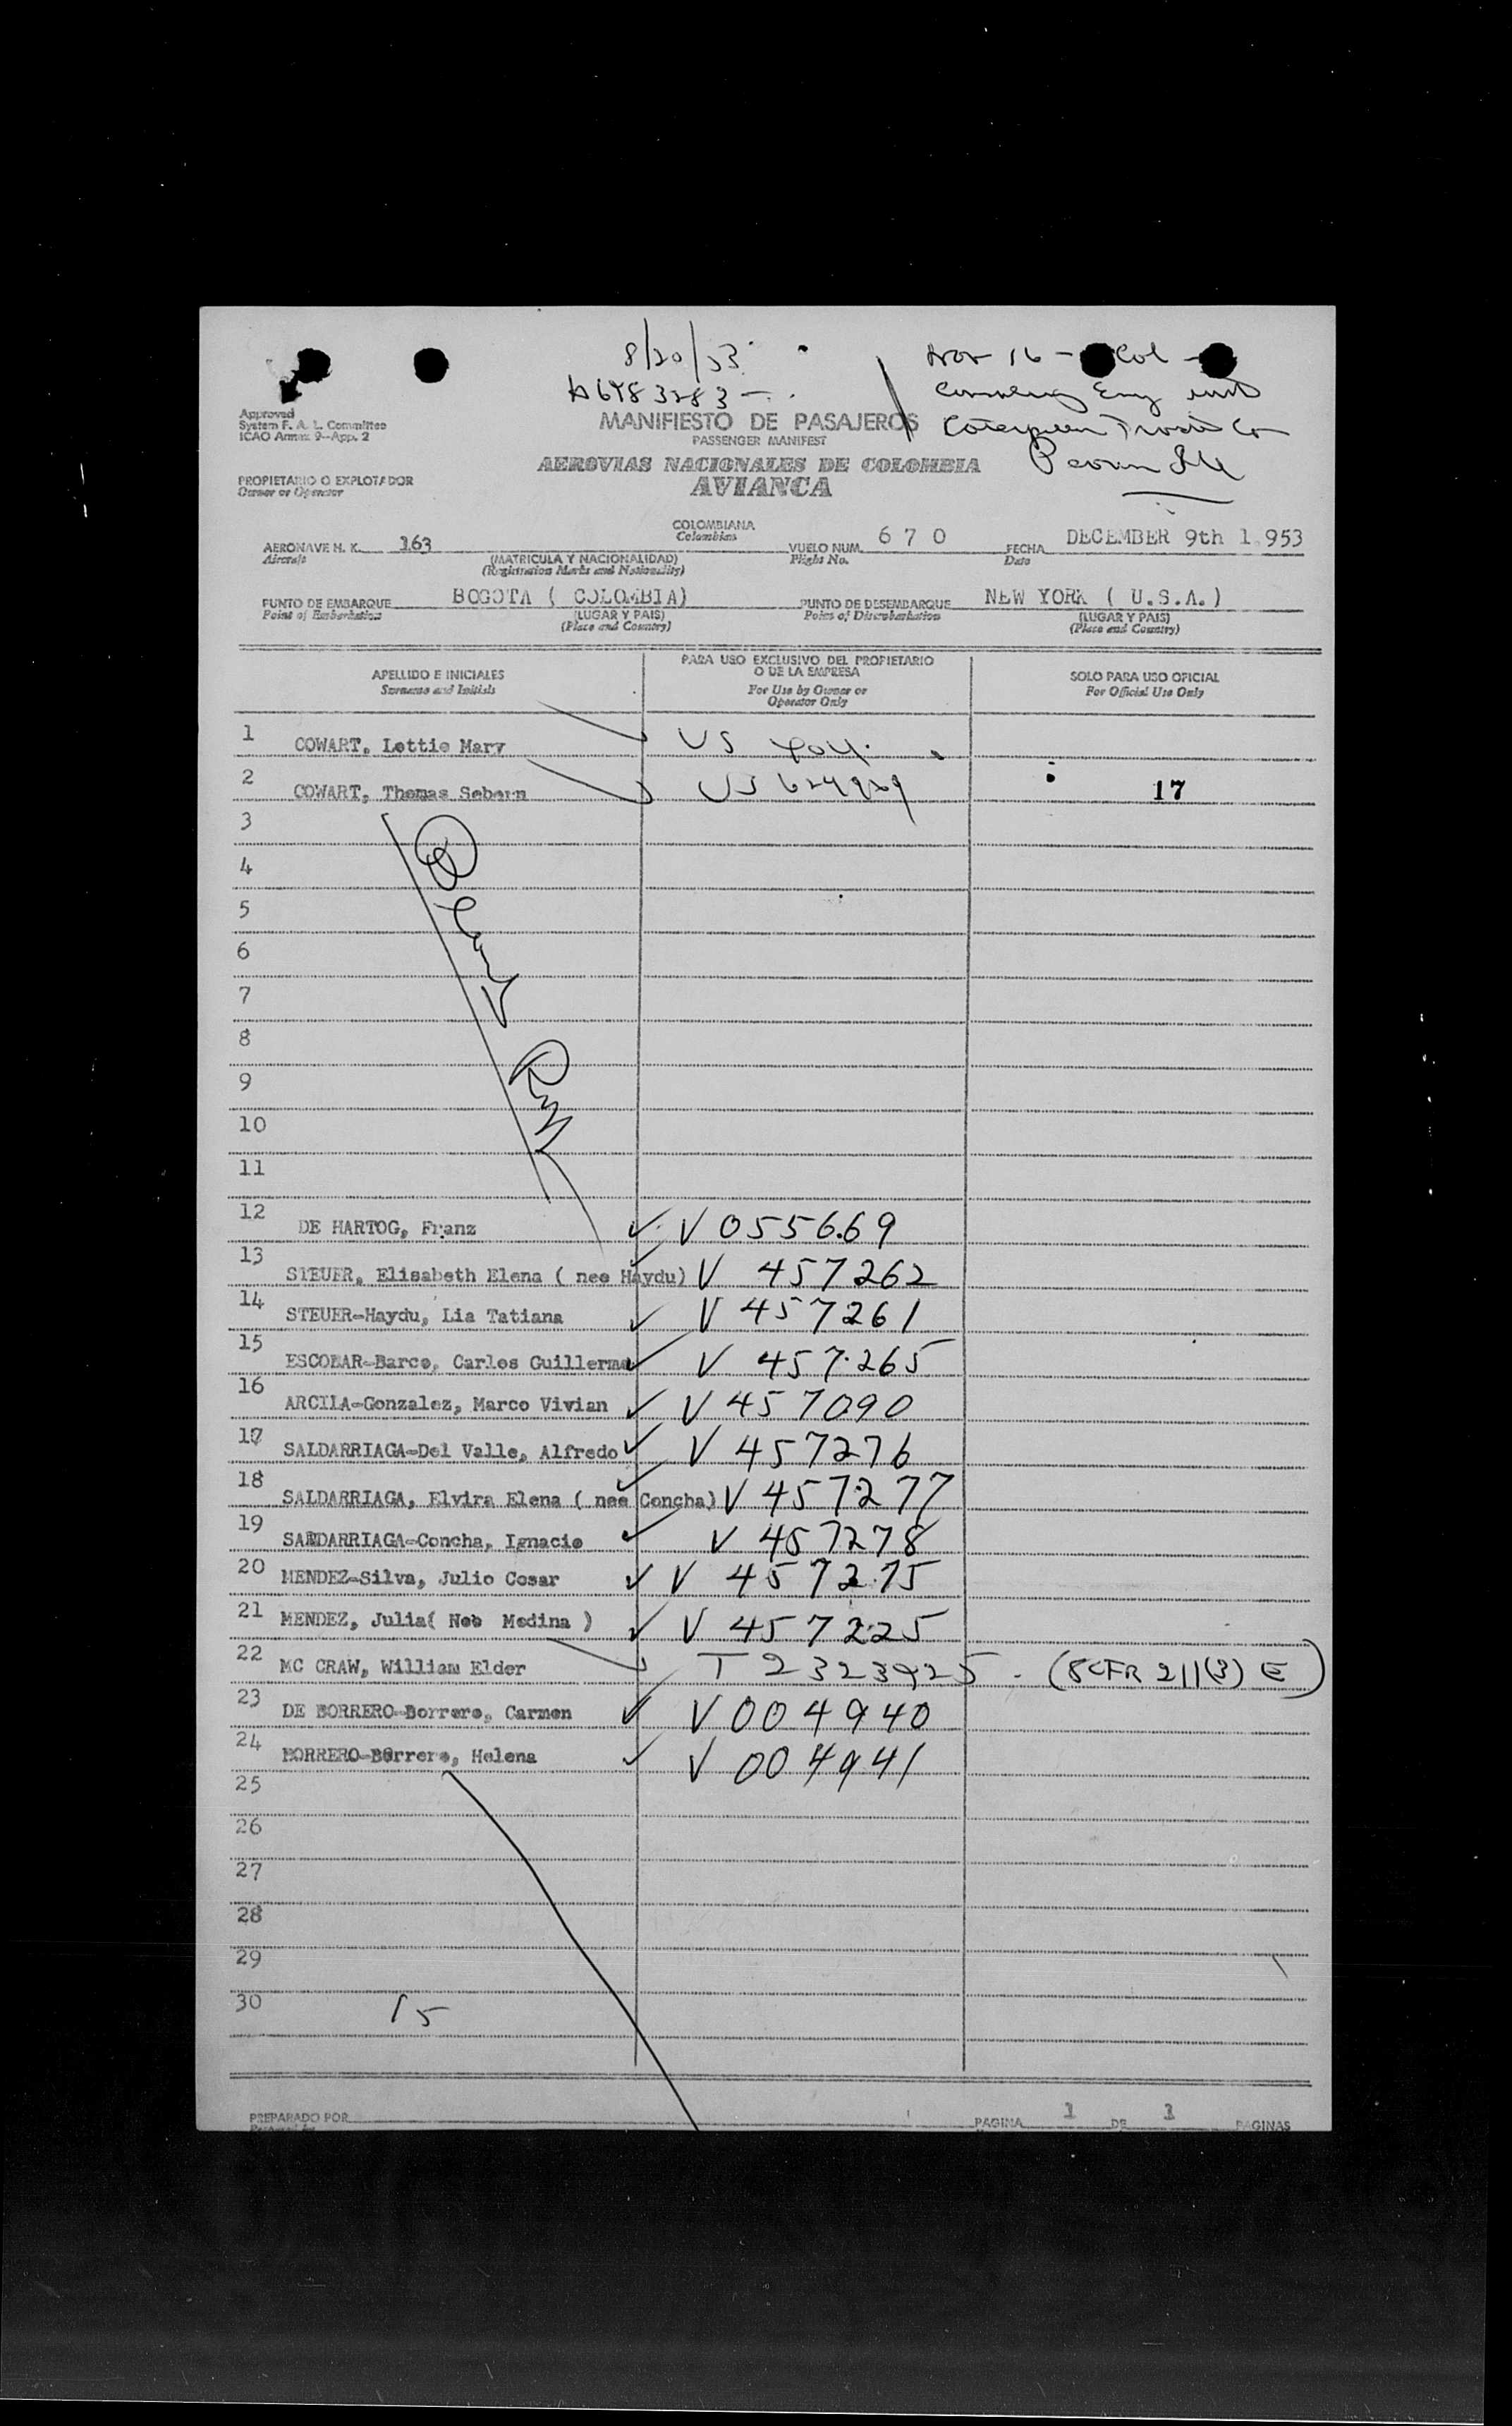 8/20/53
A6483283 -
Nov 16 - Col -
Eng
Caterpillar Co
Approved
System F. A. L. Committee
ICAO Annex 9--App. 2
MANIFIESTO DE PASAJEROS
PASSENGER MANIFEST
AEROVIAS NACIONALES DE COLOMBIA
AVIANCA
PROPIETARIO O EXPLOTADOR
Owner or Operator
AERONAVE H. K. 163 COLOMBIANA VUELO NUM. 6 7 0 FECHA DECEMBER 9th 1.953
Aircraft (MATRICULA Y NACIONALIDAD) Colombian Flight No. Date
(Registration Marks and Nationality)
PUNTO DE EMBARQUE BOGOTA ( COLOMBIA) PUNTO DE DESEMBARQUE NEW YORK ( U.S.A.)
Point of Embarkation (LUGAR Y PAIS) Point of Disembarkation (LUGAR Y PAIS)
(Place and Country) (Place and Country)
APELLIDO E INICIALES PARA USO EXCLUSIVO DEL PROPIETARIO O DE LA EMPRESA SOLO PARA USO OFICIAL
Surname and Initials For Use by Owner or Operator Only For Official Use Only
1 COWART, Lettie Mary US
2 COWART, Thomas Seborn US 624929 17
3
4
5
6
7
8
9
10
11
12 DE HARTOG, Franz V 055669
13 STEUER, Elisabeth Elena ( nee Haydu) V 457262
14 STEUER-Haydu, Lia Tatiana V 457261
15 ESCOBAR-Barco, Carlos Guillermo V 457265
16 ARCILA-Gonzalez, Marco Vivian V 457090
17 SALDARRIAGA-Del Valle, Alfredo V 457276
18 SALDARRIAGA, Elvira Elena ( nee Concha) V 457277
19 SALDARRIAGA-Concha, Ignacio V 457278
20 MENDEZ-Silva, Julio Cesar V 457275
21 MENDEZ, Julia( Neb Medina ) V 457225
22 MC CRAW, William Elder T 2323925 - (8CFR 211(3) E)
23 DE BORRERO-Borrero, Carmen V 004940
24 BORRERO-Borrero, Helena V 004941
25
26
27
28
29
30 15
PREPARADO POR PAGINA 1 DE 1 PAGINAS